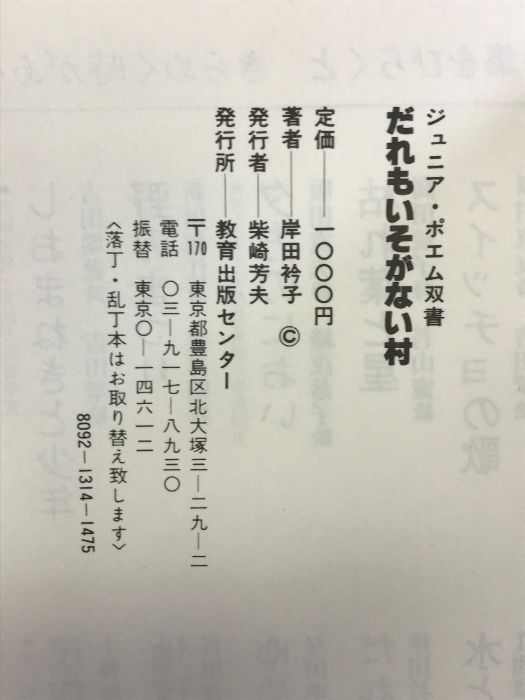 ジュニア・ポエム双書
だれもいそがない村
定価——一〇〇〇円
著者——岸田衿子 ©
発行者——柴崎芳夫
発行所——教育出版センター
〒170 東京都豊島区北大塚三—二九—二
電話 〇三—九一七—八九三〇
振替 東京〇—一四六一二
〈落丁・乱丁本はお取り替え致します〉
8092—1314—1475